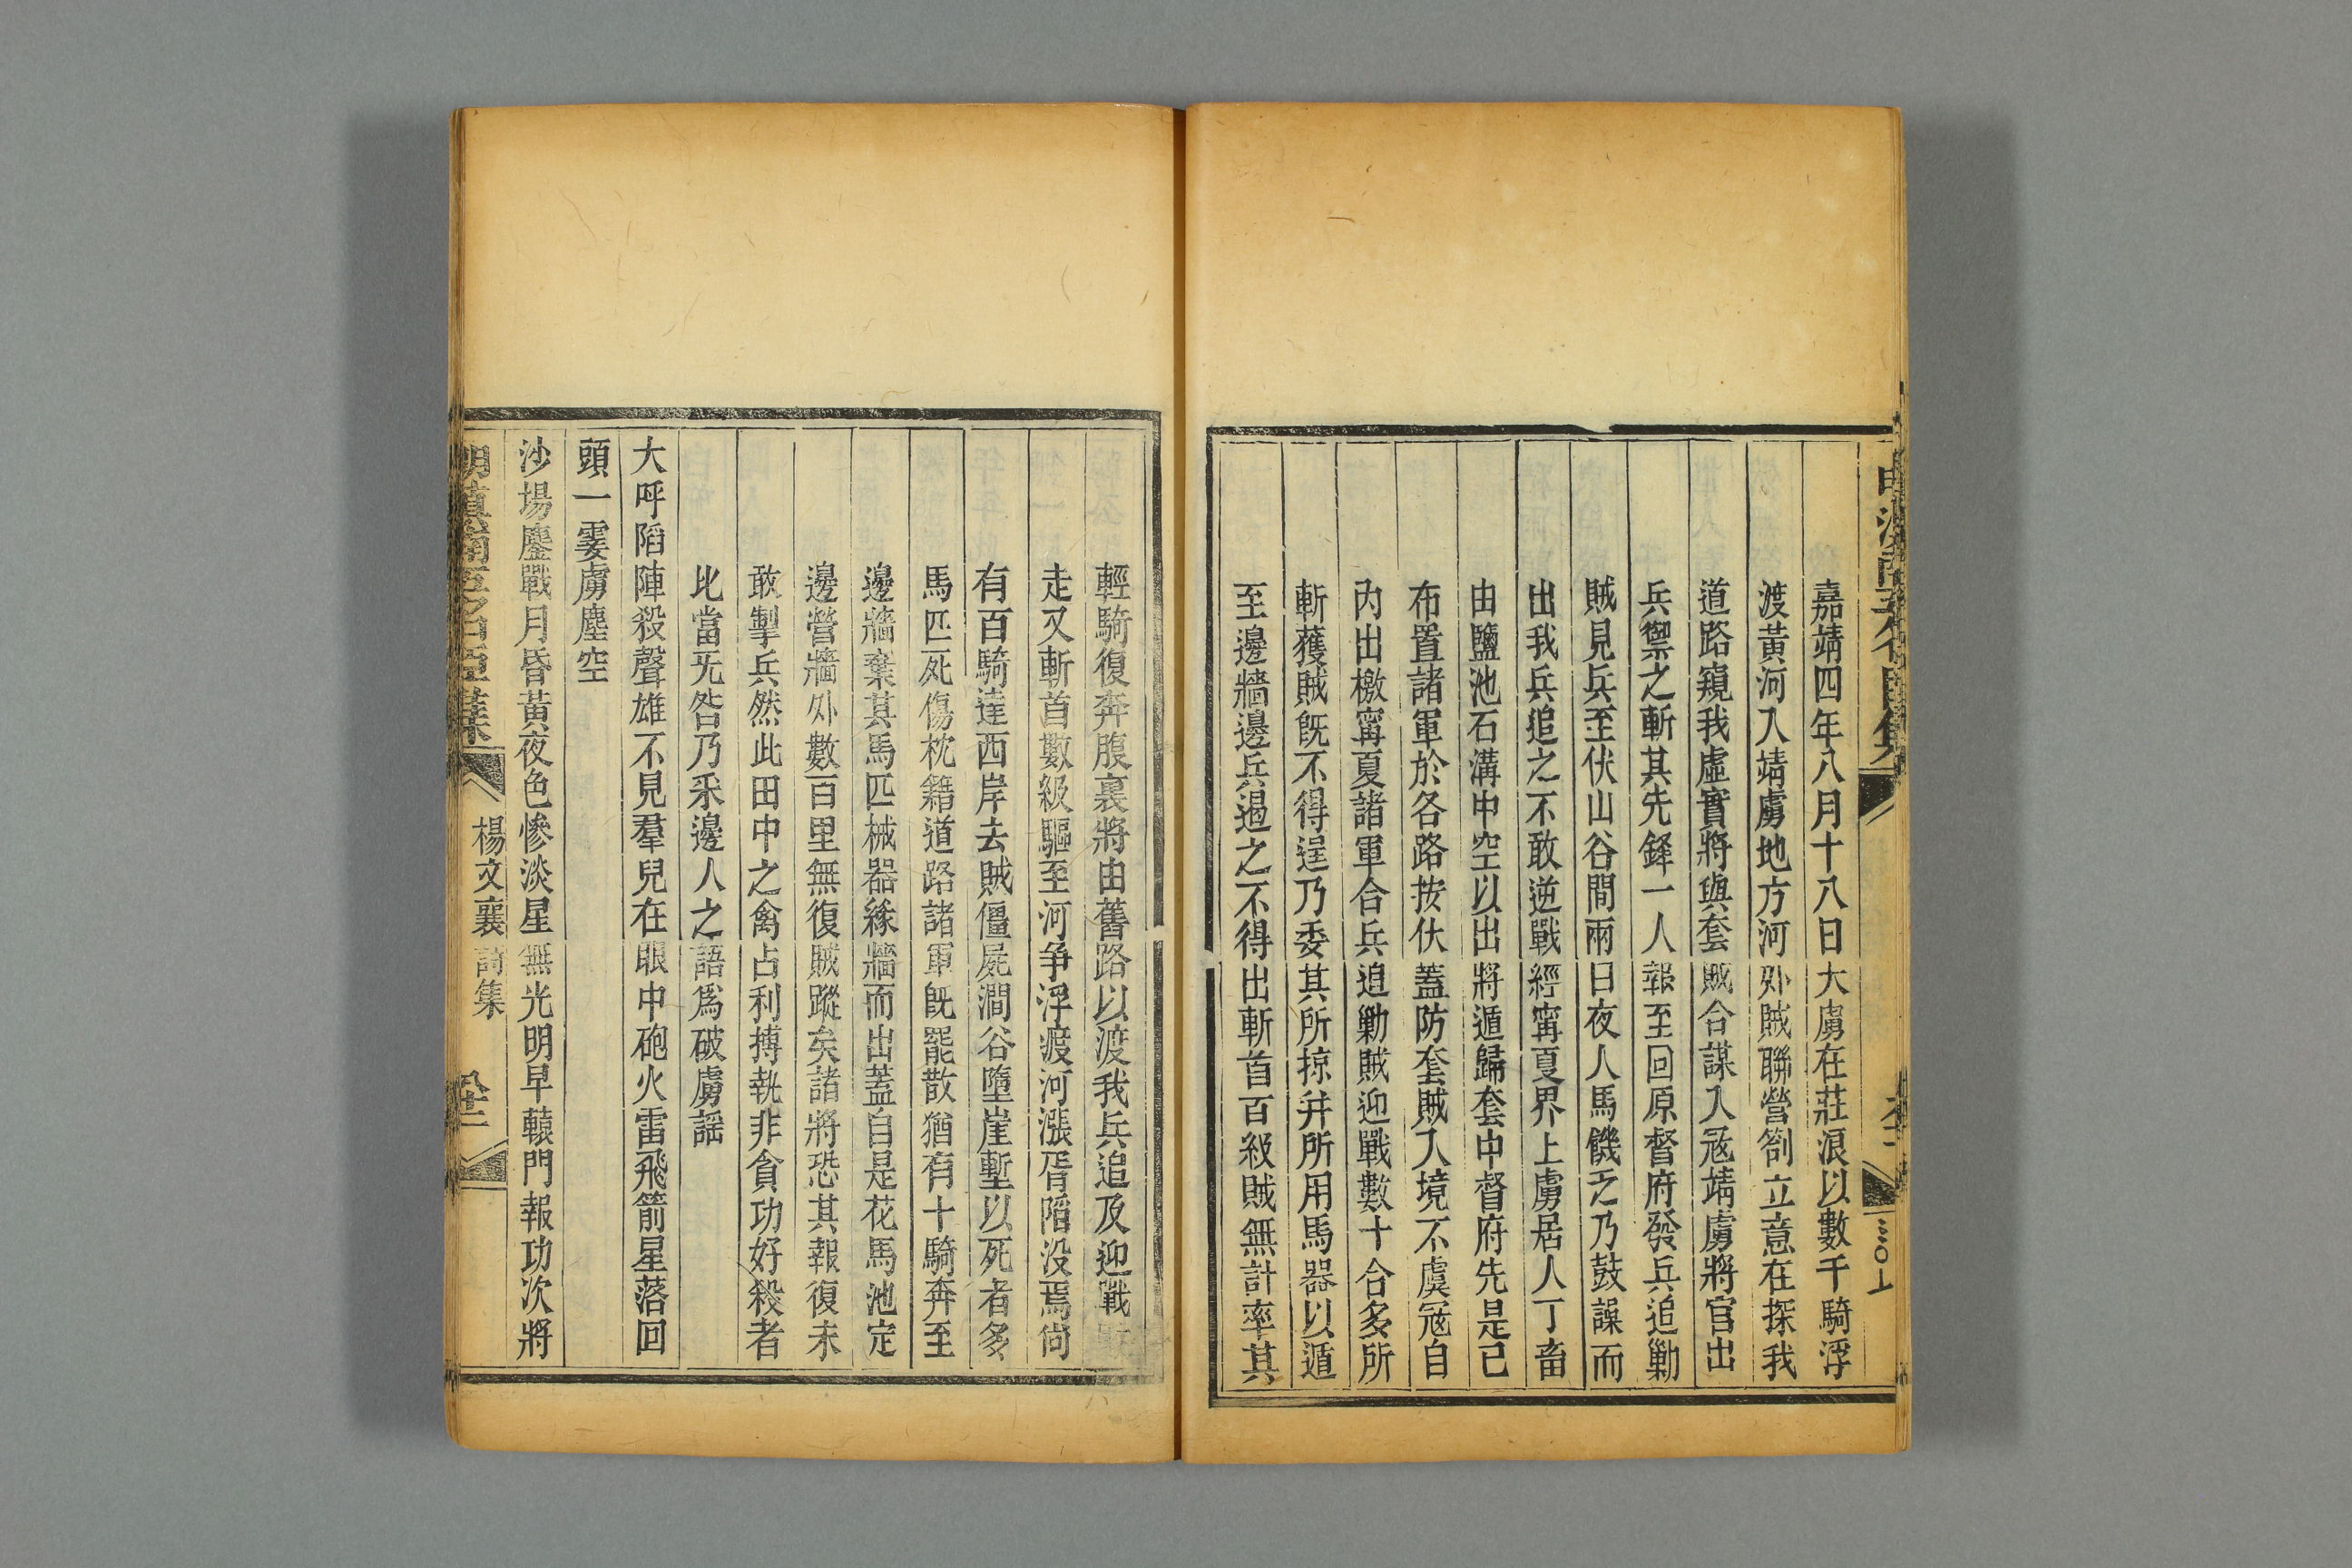 嘉靖四年八月十八日大虜在莊浪以數千騎浮
渡黃河入靖虜地方河外賊聯營劄立意在探我
道路窺我虛實將與套賊合謀入冦靖虜將官出
兵禦之斬其先鋒一人報至回原督府發兵追勦
賊見兵至伏山谷間兩日夜人馬饑乏乃鼓譟而
出我兵追之不敢逆戰經寗夏界上虜居人丁畜
由鹽池石溝中空以出將遁歸套中督府先是已
布置諸軍於各路按伏蓋防套賊入境不虞冦自
內出檄寗夏諸軍合兵追勦賊迎戰數十合多所
斬獲賊旣不得逞乃委其所掠并所用馬器以遁
至邊牆邊兵遏之不得出斬首百級賊無計率其
輕騎復奔腹裏將由舊路以渡我兵追及迎戰
走又斬首數級驅至河爭浮渡河漲胥陷没焉尙
有百騎達西岸去賊僵屍澗谷墮崖塹以死者多
馬匹死傷枕籍道路諸軍旣罷散猶有十騎奔至
邊牆棄其馬匹械器緣牆而出蓋自是花馬池定
邊營牆外數百里無復賊蹤矣諸將恐其報復未
敢掣兵然此田中之禽占利搏執非貪功好殺者
比當无咎乃釆邊人之語爲破虜謡
大呼陷陣殺聲雄不見羣兒在眼中砲火雷飛箭星落回
頭一霎虜塵空
沙場鏖戰月昏黃夜色慘淡星無光明早轅門報功次將
楊文襄詩集